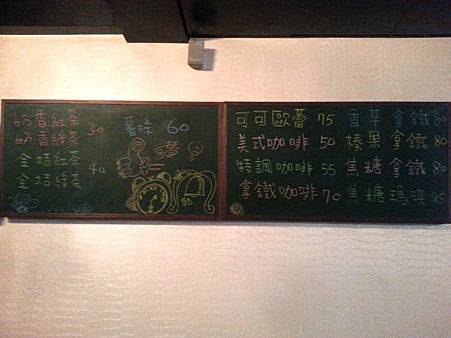 奶香紅茶
奶香綠茶 50
金桔紅茶
金桔綠茶 40
薯條 60
可可歐蕾 75
美式咖啡 50
特調咖啡 55
拿鐵咖啡 70
香草拿鐵 80
榛果拿鐵 80
焦糖拿鐵 80
焦糖瑪琪 85